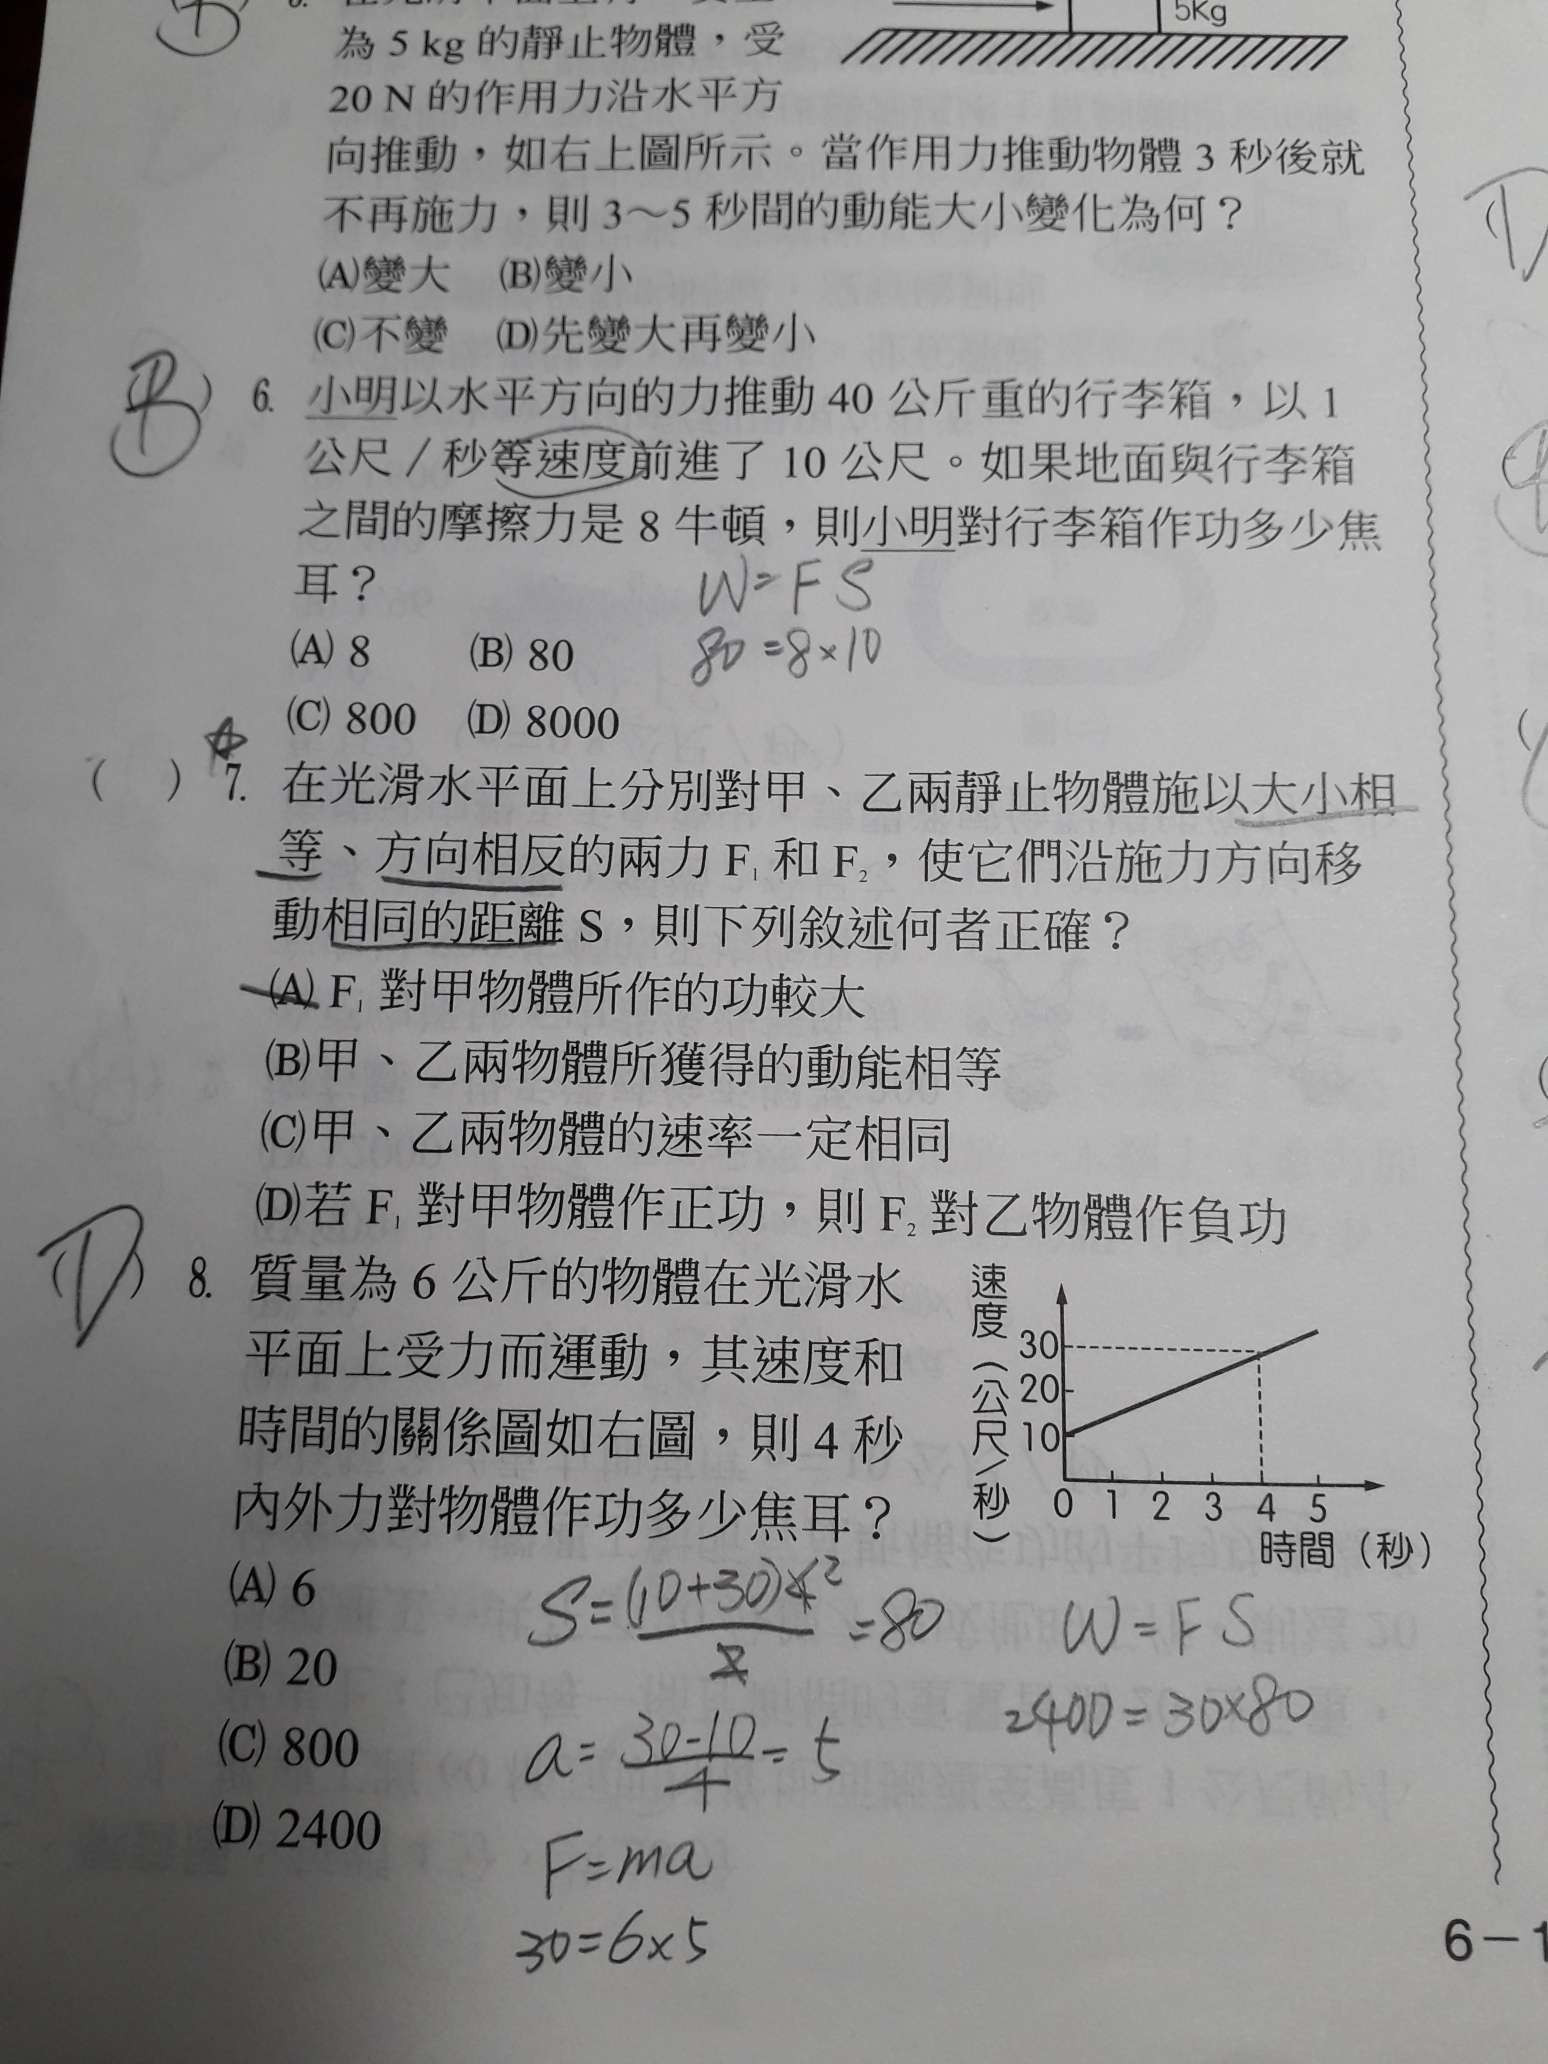 5Kg
為 5 kg 的靜止物體，受
20 N 的作用力沿水平方
向推動，如右上圖所示。當作用力推動物體 3 秒後就
不再施力，則 3～5 秒間的動能大小變化為何？
(A)變大 (B)變小
(C)不變 (D)先變大再變小
(B) 6. 小明以水平方向的力推動 40 公斤重的行李箱，以 1
公尺／秒等速度前進了 10 公尺。如果地面與行李箱
之間的摩擦力是 8 牛頓，則小明對行李箱作功多少焦
耳？
W=FS
(A) 8 (B) 80
80=8×10
(C) 800 (D) 8000
( ) 7. 在光滑水平面上分別對甲、乙兩靜止物體施以大小相
等、方向相反的兩力 F₁ 和 F₂，使它們沿施力方向移
動相同的距離 S，則下列敘述何者正確？
(A) F₁ 對甲物體所作的功較大
(B)甲、乙兩物體所獲得的動能相等
(C)甲、乙兩物體的速率一定相同
(D)若 F₁ 對甲物體作正功，則 F₂ 對乙物體作負功
(D) 8. 質量為 6 公斤的物體在光滑水
平面上受力而運動，其速度和
時間的關係圖如右圖，則 4 秒
內外力對物體作功多少焦耳？
速度（公尺／秒）
30
20
10
0 1 2 3 4 5
時間（秒）
(A) 6
(B) 20
(C) 800
(D) 2400
S=(10+30)4²/2=80
a=30-10/4=5
F=ma
30=6×5
W=FS
2400=30×80
6－1